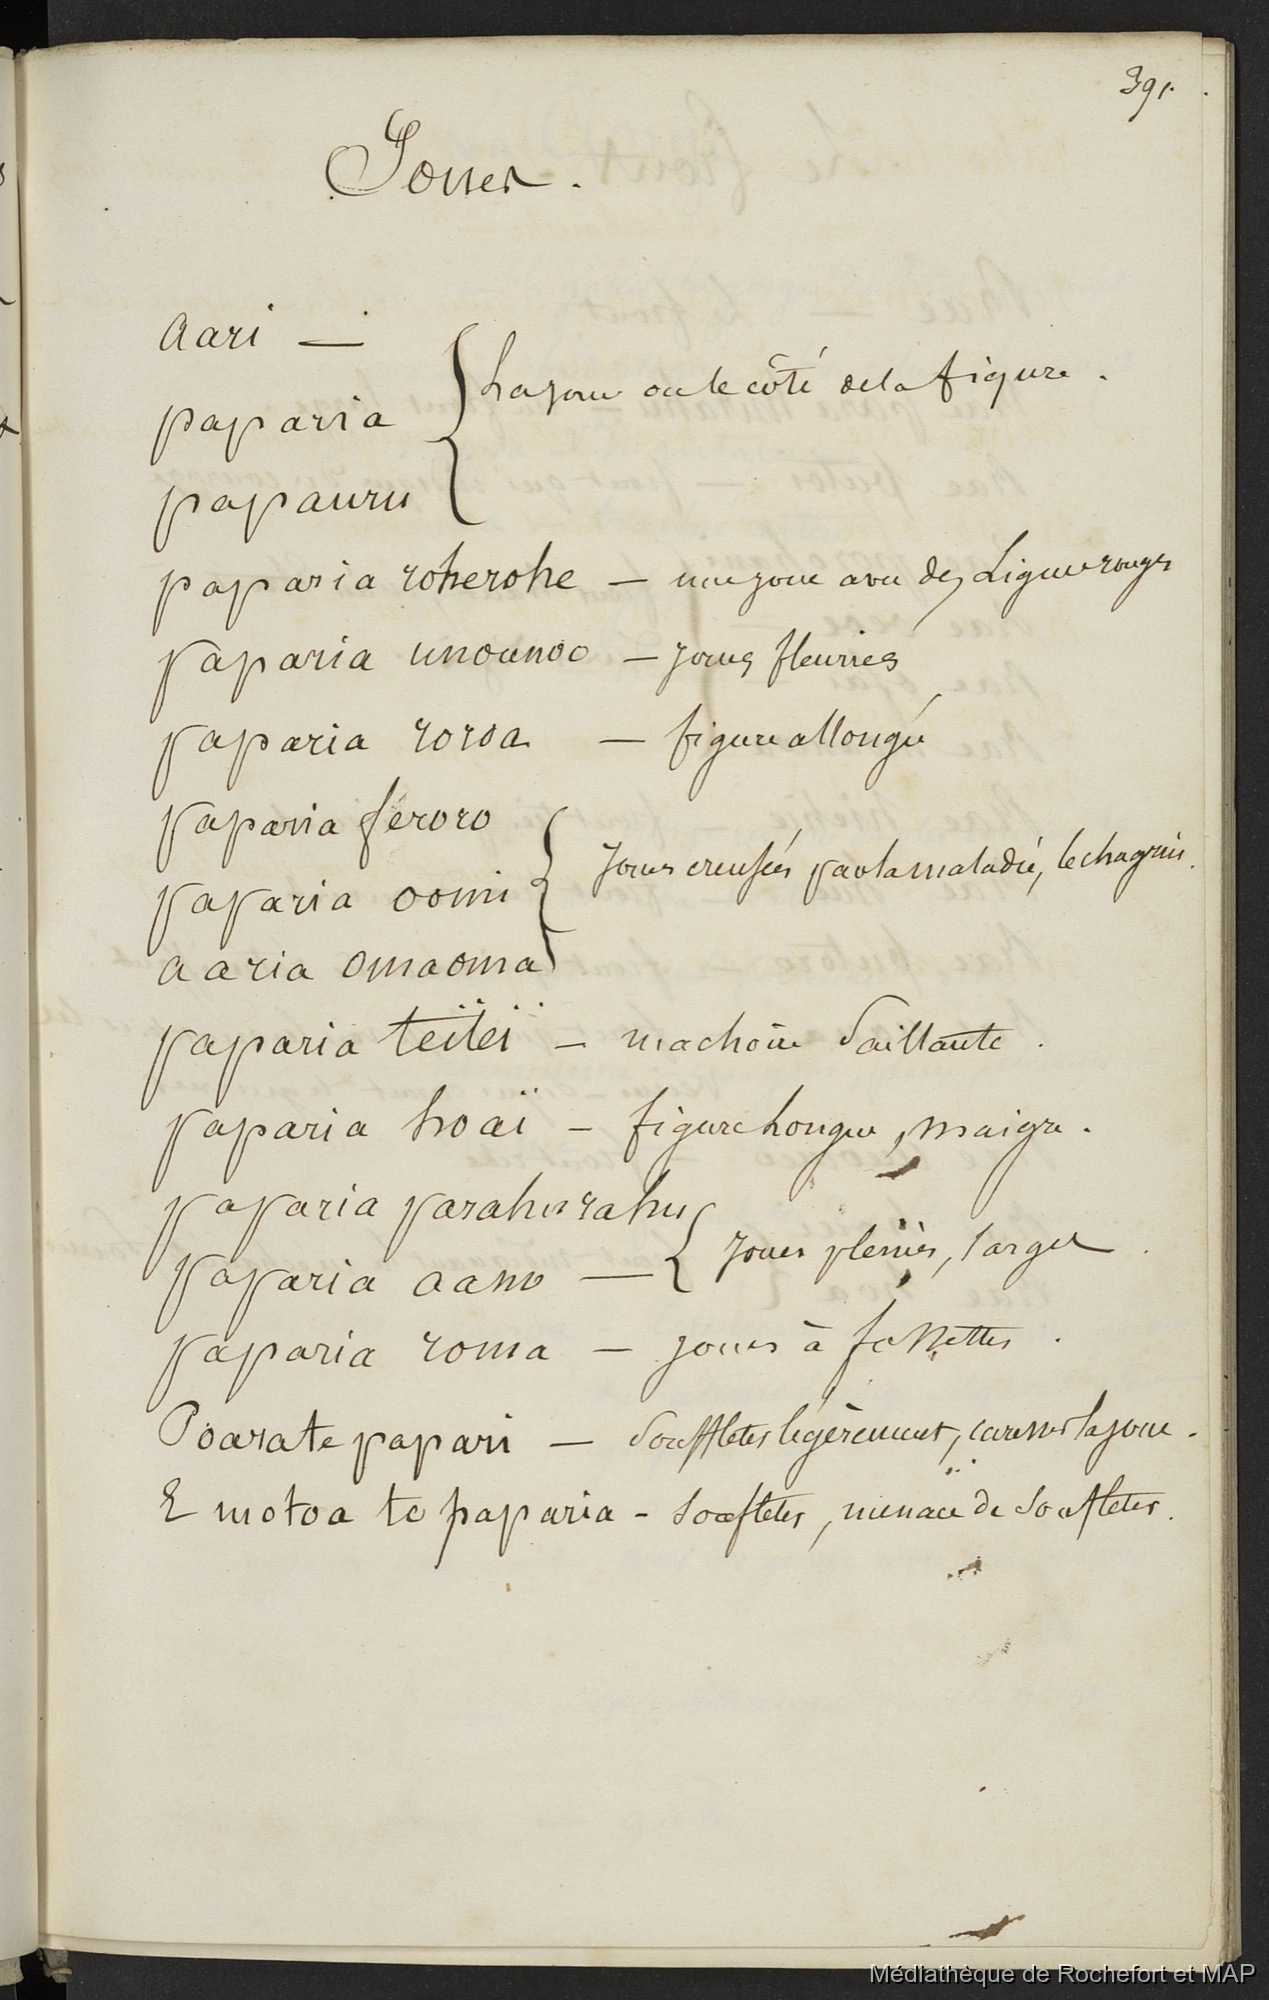 391.
Joues.
aari —
paparia
papauru
La joue ou le côté de la figure.
paparia roherohe — une joue avec des Lignes rouges
paparia unounoo — joues fleuries
paparia roroa — figure allongée
paparia féroro
paparia oomi
aaria omaoma
joues creusées par la maladie, le chagrin.
paparia teïteï — machoire Saillante.
paparia hoaï — figure Longue, maigre.
paparia parahurahu
paparia aano —
joues pleines, larges
paparia roma — joues à fossettes.
Poarate papari — Souffleter légèrement, caresser la joue.
E motoa te paparia - Soufleter, menace de Soufleter.
Médiathèque de Rochefort et MAP